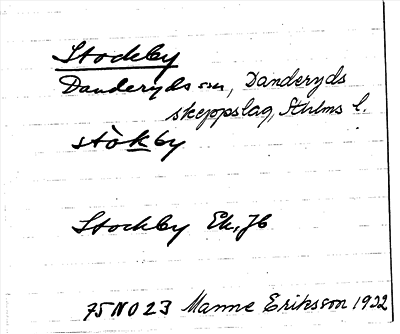 Stockby
Danderyds sn, Danderyds
skeppslag, Sthlms l.
stòkby
Stockby Ek, Jb
75 NO 23 Manne Eriksson 1932